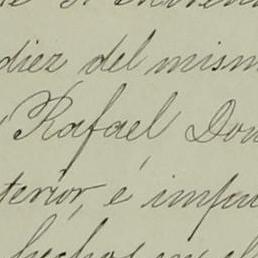 diez del mism
Rafael Don
terior, é impu
hechos en el